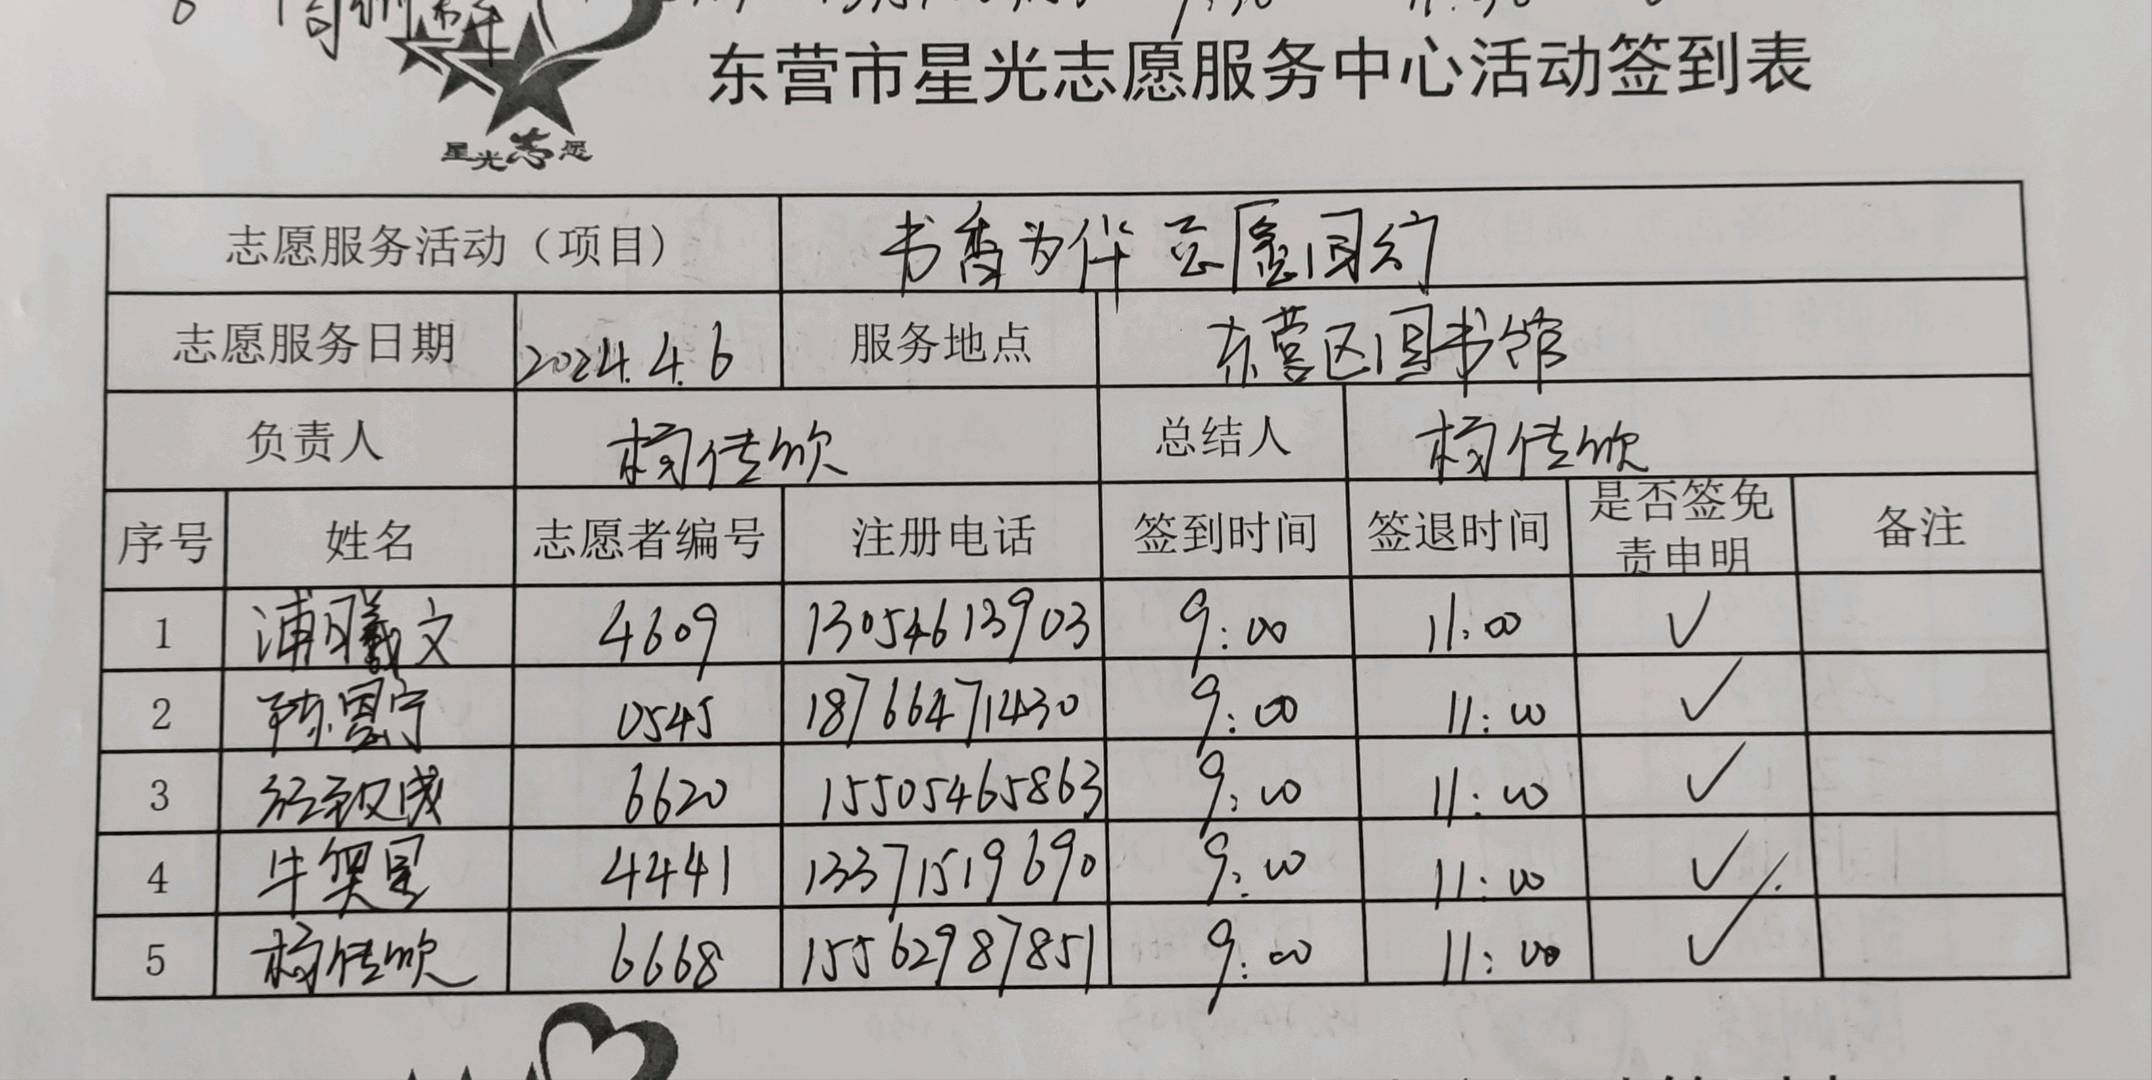 东营市星光志愿服务中心活动签到表
星光志愿
志愿服务活动（项目） 书香为伴 志愿同行
志愿服务日期 2024.4.6 服务地点 东营区图书馆
负责人 杨传欣 总结人 杨传欣
序号 姓名 志愿者编号 注册电话 签到时间 签退时间 是否签免责申明 备注
1 浦曦文 4609 13054613903 9:00 11:00 ✓
2 陈思宁 0545 18766471430 9:00 11:00 ✓
3 6620 15505465863 9:00 11:00 ✓
4 牛奕星 4441 13371519690 9:00 11:00 ✓
5 杨传欣 6668 15562987851 9:00 11:00 ✓